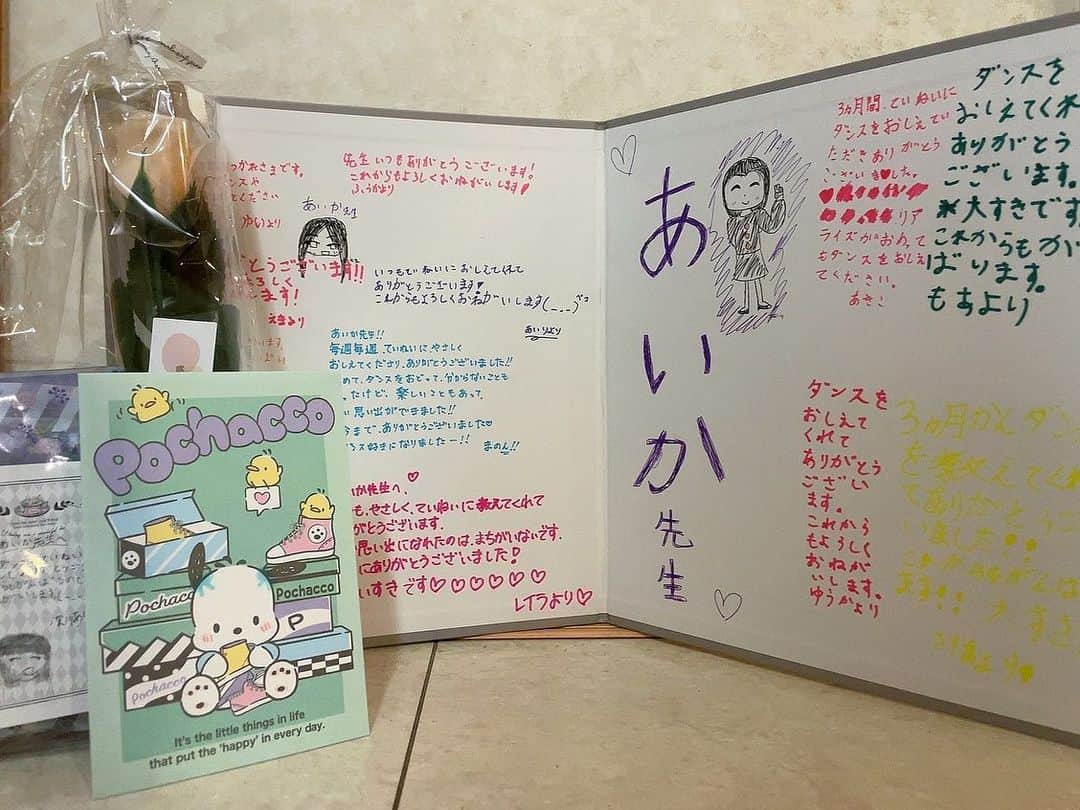 先生 いつも ありがとう ございます!
これからも よろしく おねがいします♥
ふうかより
ゆいより
あいか先生
とうございます!!
えまより
いつもていねいに おしえてくれて
ありがとうございます♥
これからもよろしくおねがいします(_ _ _)
あいりより
あいか先生!!
毎週毎週、ていねいに、やさしく
おしえてくださり、ありがとうございました!!
めて、ダンスをおどって、分からないことも
たけど、楽しいこともあって、
い思い出ができました!!
まで、ありがとうございました♡
ス好きになりましたー!! まのん!!
か先生へ、
も、やさしく、ていねいに教えてくれて
がとうございます。
思い出になれたのは、まちがいないです。
にありがとうございました!
いすきです♡♡♡♡♡♡
レイラより♡
あいか先生
3ヵ月間、ていねいに
ダンスをおしえてい
ただきありがとう
ございました。
リア
ライズがおわって
もダンスをおしえ
てください。
あさこ
ダンスを
おしえてくれ
ありがとう
ございます。
大すきです
これからもが
ばります。
もあより
ダンスを
おしえて
くれて
ありがとう
ござい
ます。
これから
もよろしく
おねが
いします。
ゆうかより
3ヵ月かんダン
を教えてくれ
てありがとうご
いました!!
Pochacco
Pochacco
Pochacco
P
Pochacco
It's the little things in life
that put the 'happy' in every day.